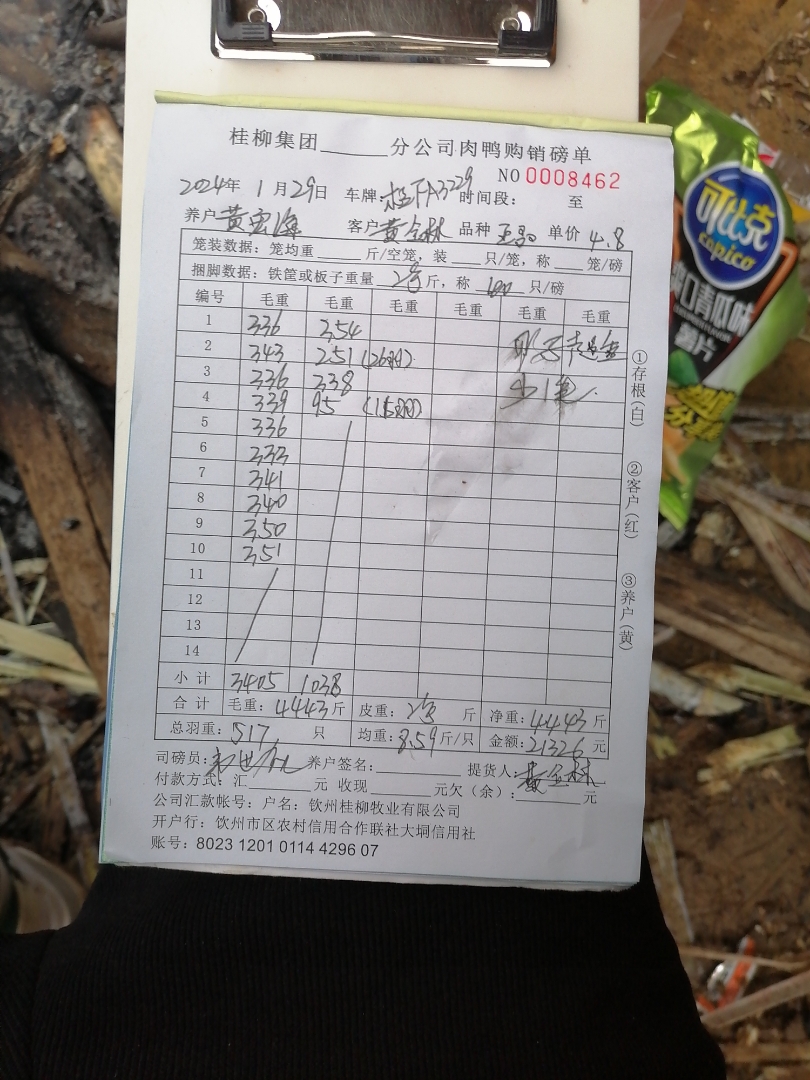 桂柳集团______分公司肉鸭购销磅单
NO 0008462
2024年 1月29日 车牌:桂FA3229 时间段: 至
养户 黄宏海 客户 黄全林 品种 单价 4.8
笼装数据:笼均重____斤/空笼,装___只/笼,称___笼/磅
捆脚数据:铁筐或板子重量 斤,称 只/磅
编号 毛重 毛重 毛重 毛重 毛重 毛重
1 336 354
2 343 251 (26只)
3 336 338
4 339 95
5 336
6 333
7 341
8 340
9 350
10 351
11
12
13
14
小计 3405 1038
合计 毛重:4443斤 皮重: 斤 净重:4443斤
总羽重:517 只 均重:8.59斤/只 金额:21326元
司磅员: 养户签名:________ 提货人:黄全林
付款方式:汇______元 收现______元欠(余):______元
公司汇款帐号:户名:钦州桂柳牧业有限公司
开户行:钦州市区农村信用合作联社大垌信用社
账号:8023 1201 0114 4296 07
①存根(白)
②客户(红)
③养户(黄)
可比克
copico
爽口青瓜味
薯片